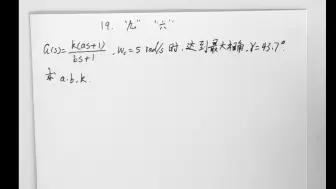 19. "九" "六"
G(s)=k(as+1)/(bs+1), Wc=5 rad/s 时, 达到最大相角, γ=43.7°
求 a.b.k.